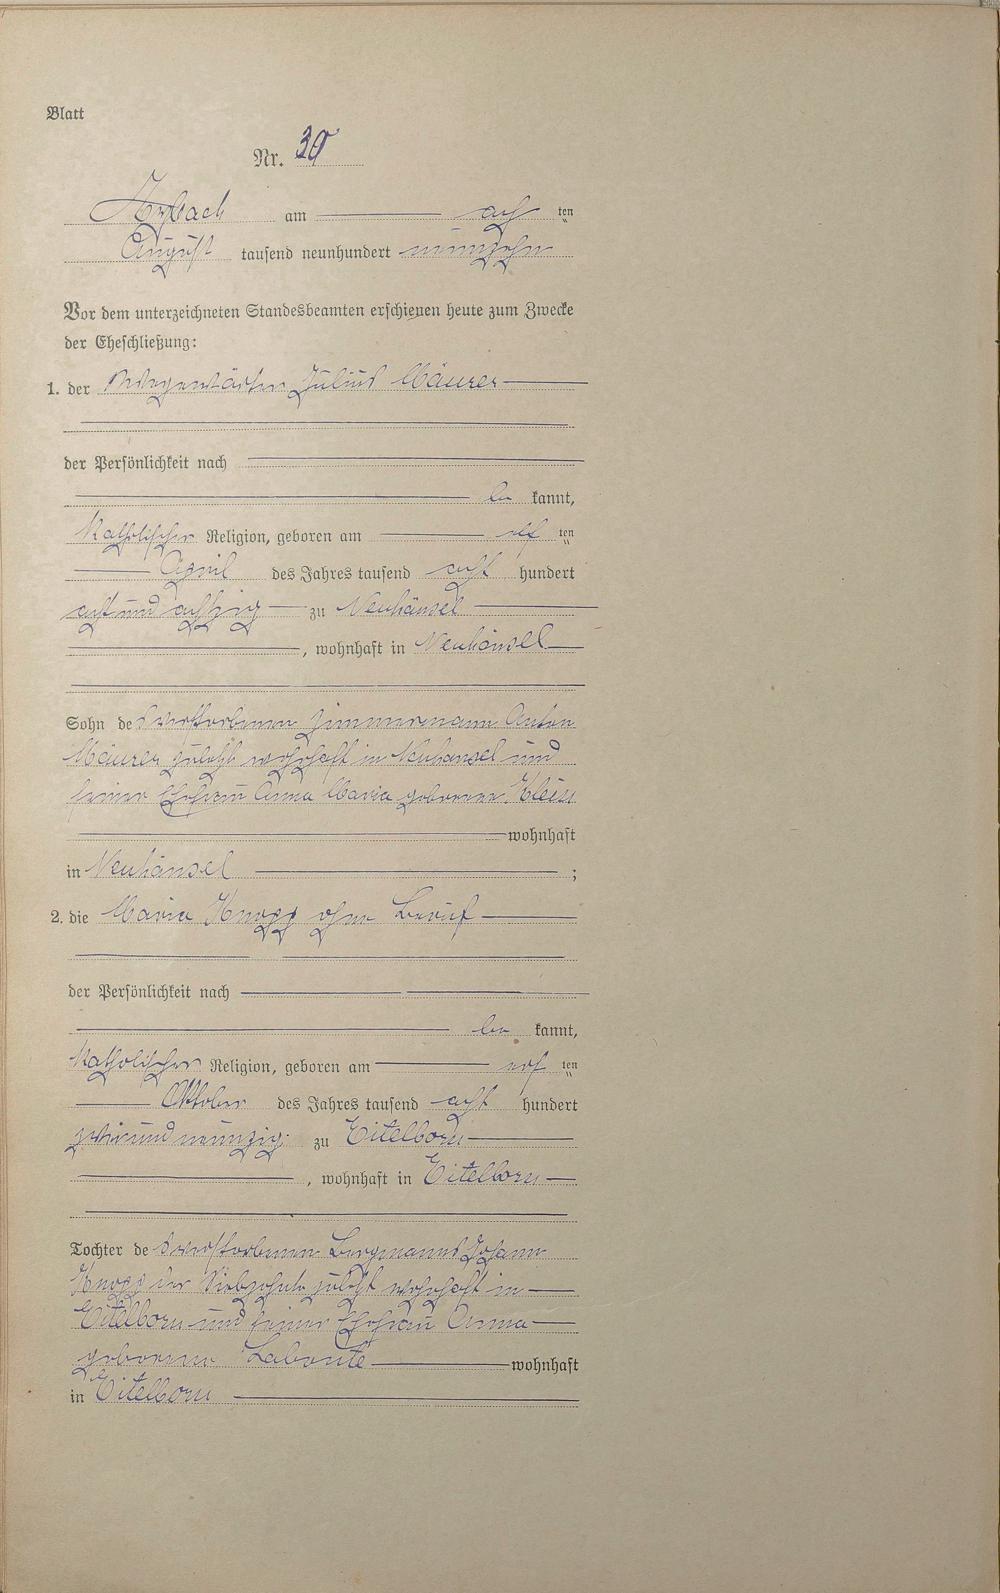 Blatt
Nr. 30
Arzbach am acht ten
August tausend neunhundert neunzehn
Vor dem unterzeichneten Standesbeamten erschienen heute zum Zwecke
der Eheschließung:
1. der Wegewärter Julius Mäurer
der Persönlichkeit nach
be kannt,
katholischer Religion, geboren am elf ten
April des Jahres tausend acht hundert
acht und achtzig zu Neuhäusel
, wohnhaft in Neuhäusel
Sohn des verstorbenen Zimmermann Anton
Mäurer zuletzt wohnhaft in Neuhäusel und
seiner Ehefrau Anna Maria geborene Klein
wohnhaft
in Neuhäusel ;
2. die Maria Knopp ohne Beruf
der Persönlichkeit nach
be kannt,
katholischer Religion, geboren am ten
Oktober des Jahres tausend acht hundert
zweiund neunzig zu Eitelborn
, wohnhaft in Eitelborn
Tochter des verstorbenen Bergmanns Johann
Knopp der Siebzehnte zuletzt wohnhaft in
Eitelborn und seiner Ehefrau Anna
geborene Labonte wohnhaft
in Eitelborn